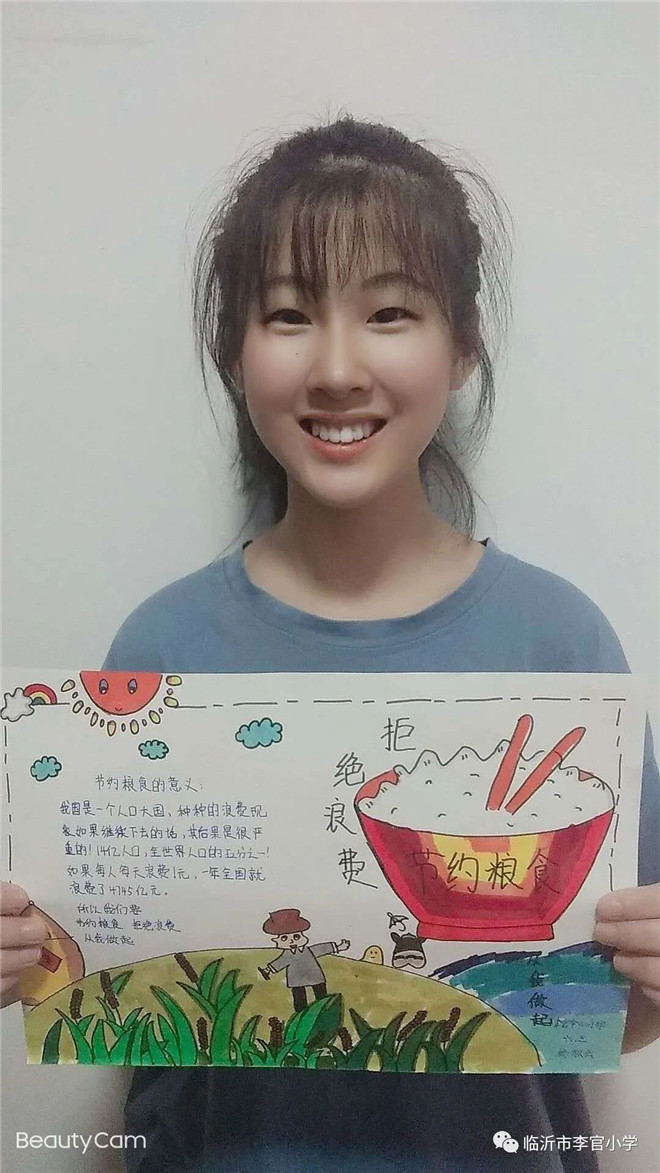 拒
绝
浪
费
节约粮食
节约粮食的意义:
我国是一个人口大国,种种的浪费现
象如果继续下去的话,其后果是很严
重的!14亿人口,全世界人口的五分之一!
如果每人每天浪费1元,一年全国就
浪费了
亿元.
所以我们要
节约粮食 拒绝浪费
从我做起
做
起
BeautyCam
临沂市李官小学